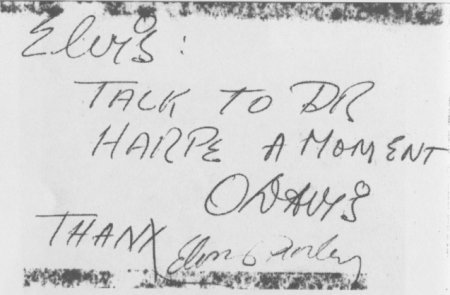 Elvis:
TALK TO DR
HARPE A MOMENT
O DAVIS
THANX
Elvis Presley